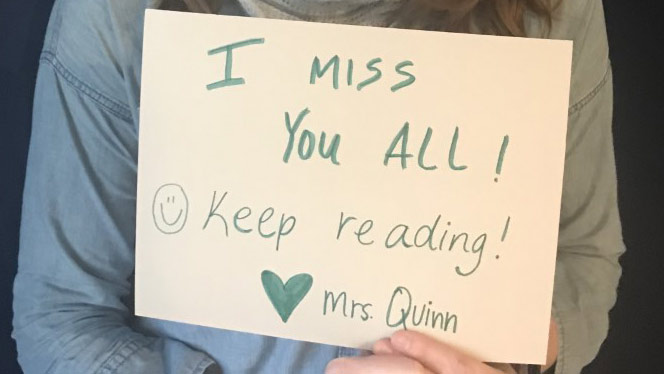 I MISS
You ALL!
Keep reading!
Mrs. Quinn